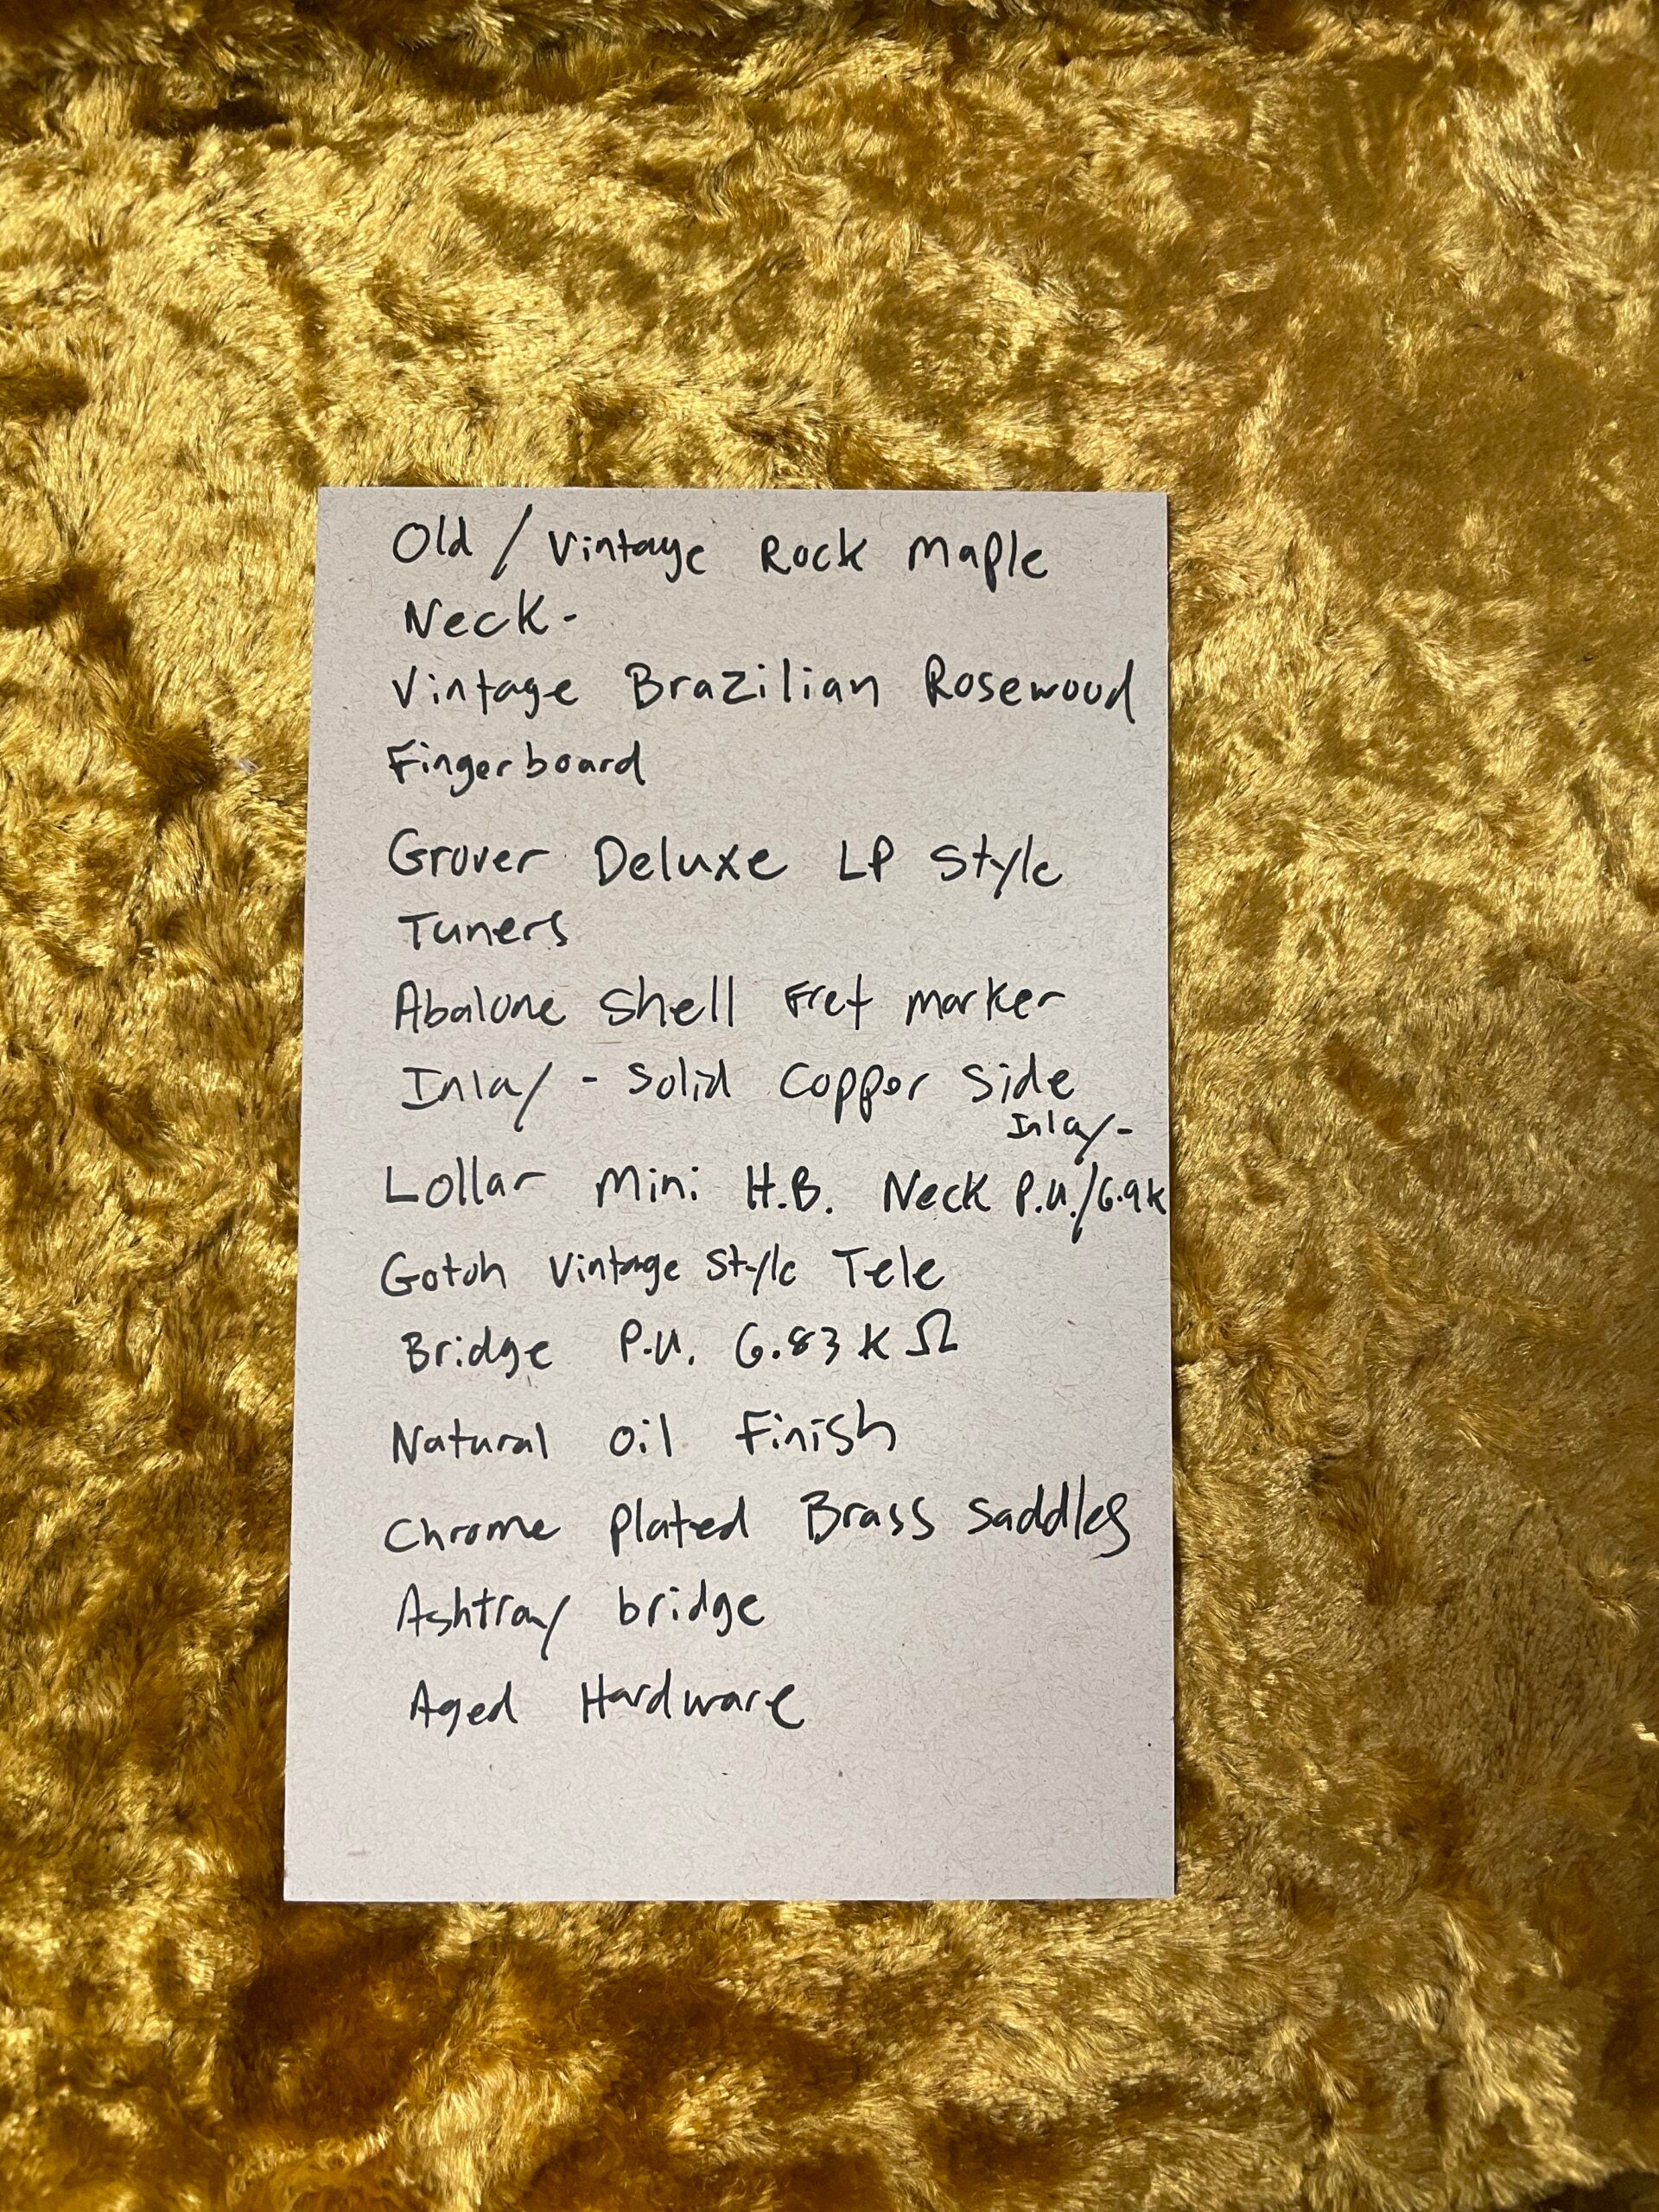 Old / Vintage Rock Maple
Neck-
Vintage Brazilian Rosewood
Fingerboard
Grover Deluxe LP Style
Tuners
Abalone Shell Fret marker
Inlay - Solid Copper Side
Inlay-
Lollar Mini H.B. Neck P.U./6.9K
Gotoh Vintage Style Tele
Bridge P.U. 6.83 K Ω
Natural Oil Finish
Chrome Plated Brass Saddles
Ashtray bridge
Aged Hardware